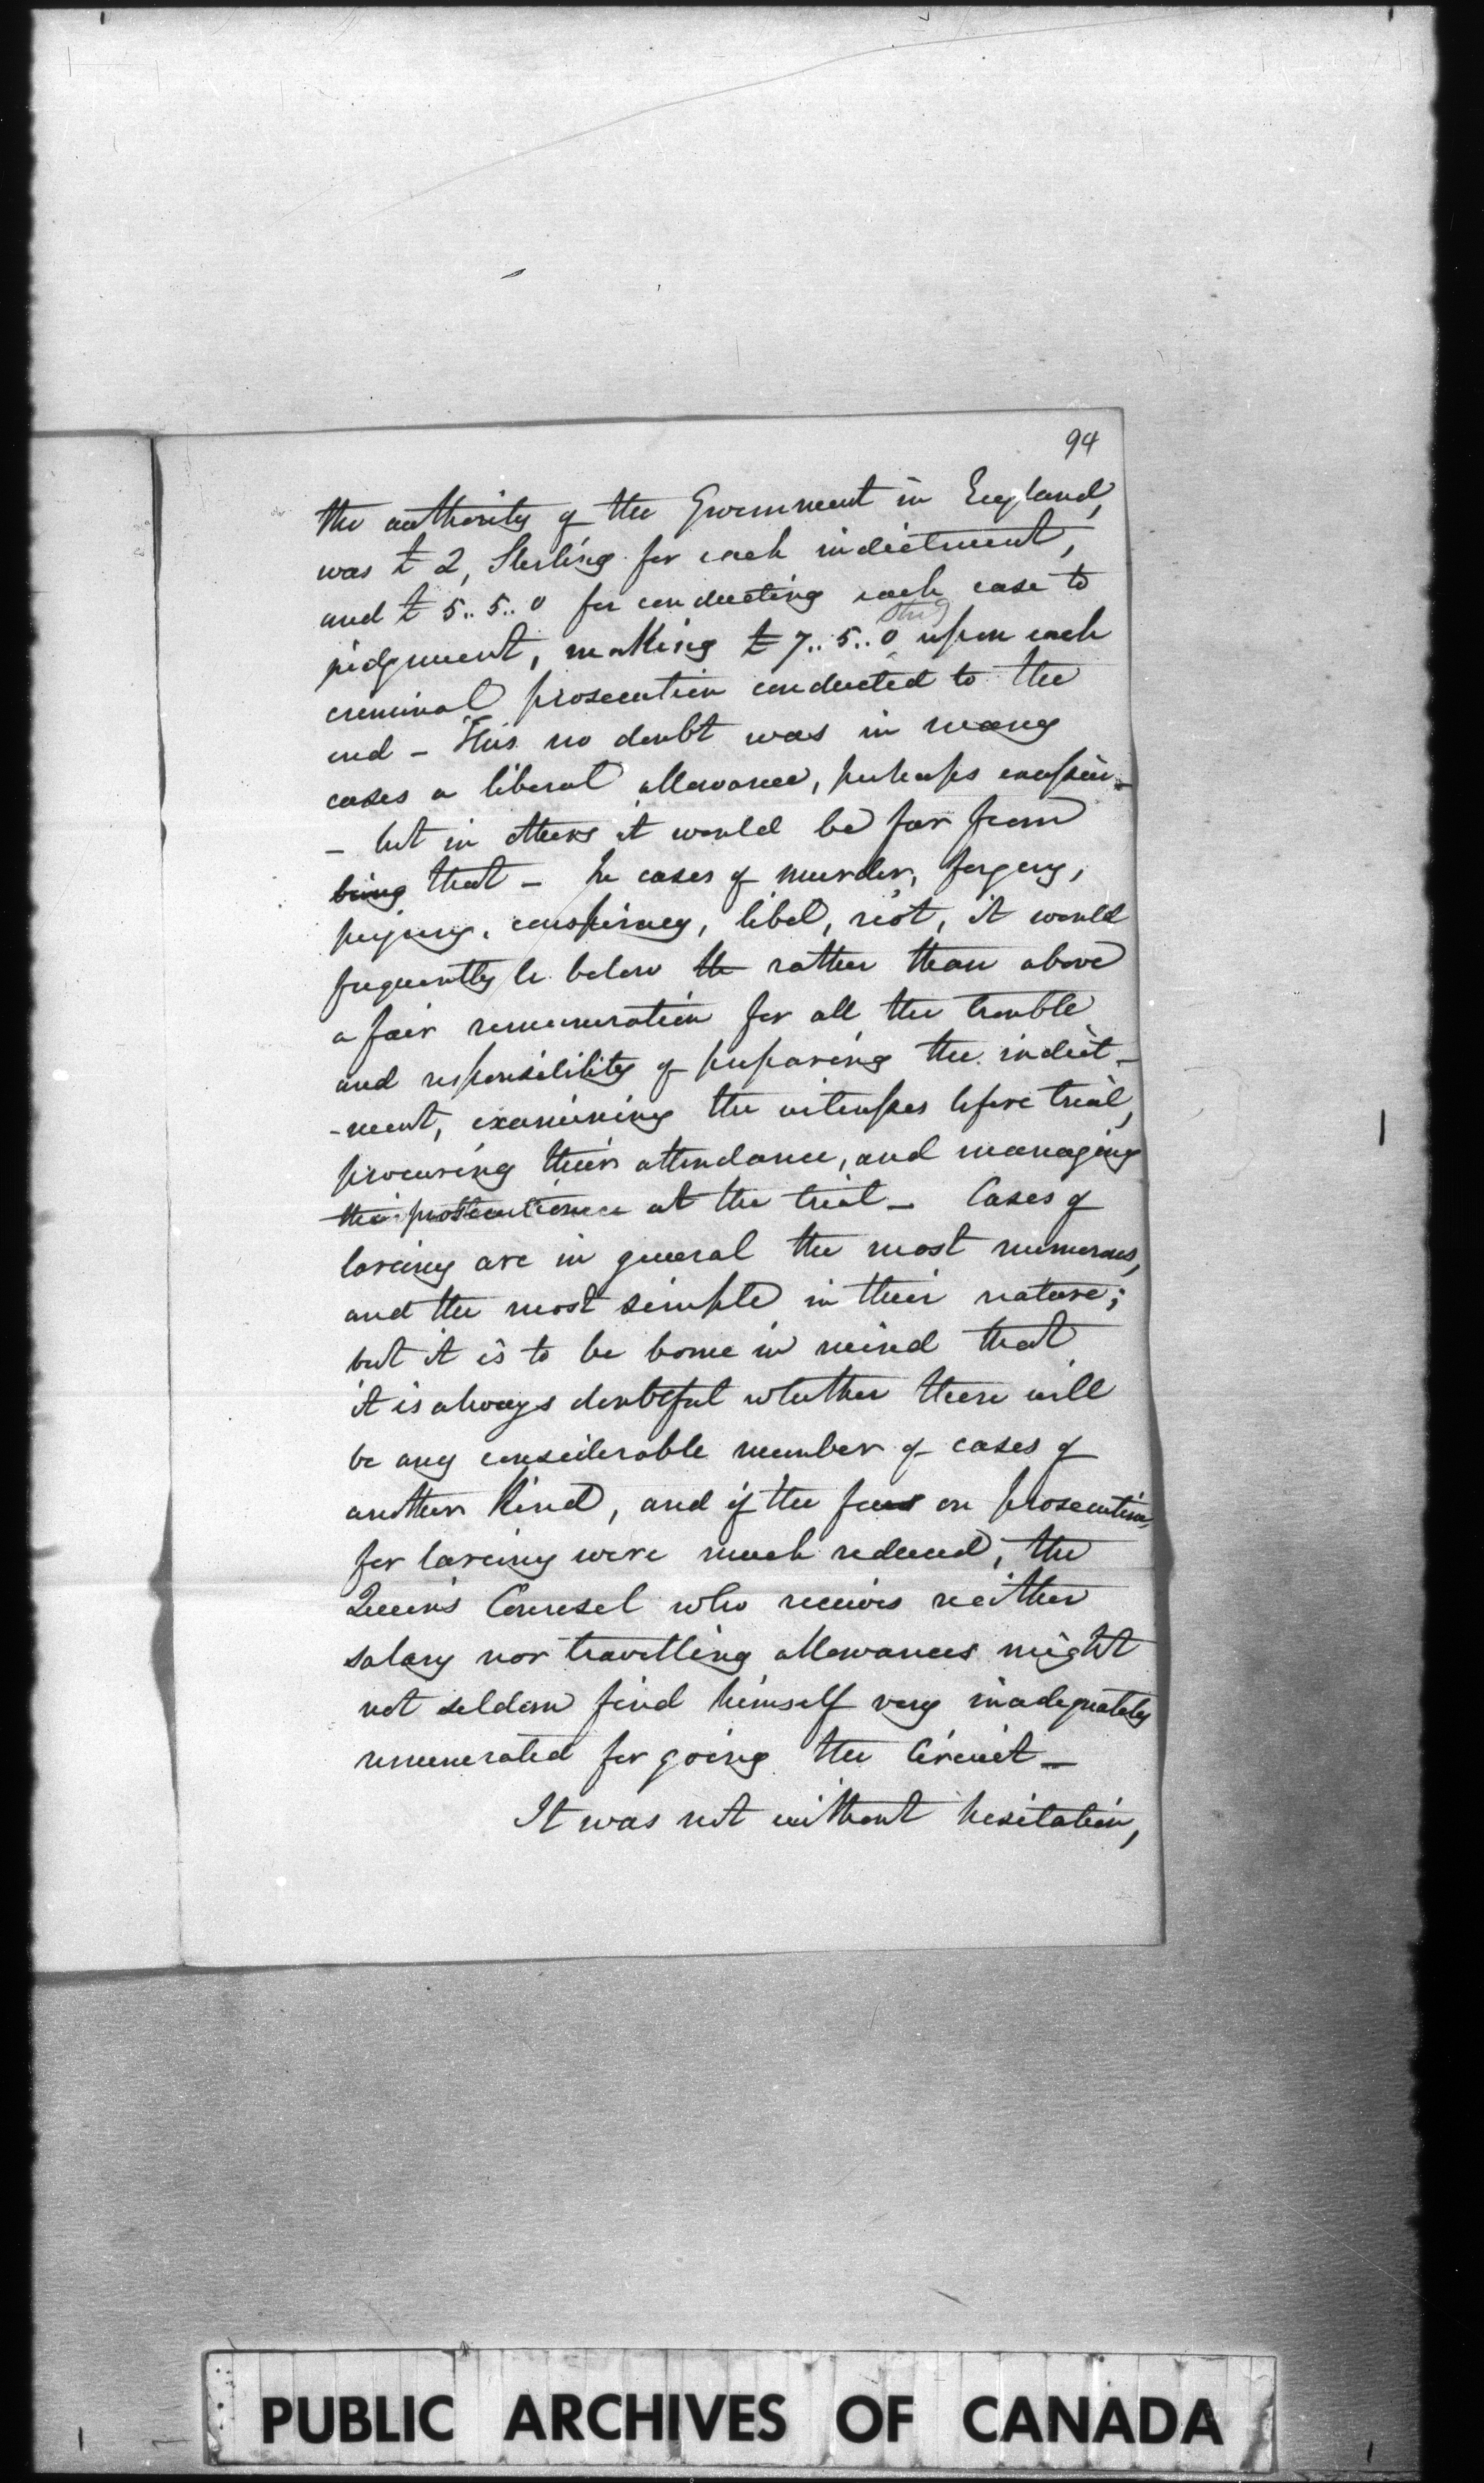 94
the authority of the Government in England,
was £2, Sterling for each indictment,
and £5..5..0 for conducting each case to
Stg
judgment, making £7..5..0 upon each
criminal prosecution conducted to the
end – This no doubt was in many
cases a liberal allowance, perhaps
– but in others it would be far from
being that – In cases of murder, forgery,
perjury, conspiracy, libel, riot, it would
frequently be below the rather than above
a fair remuneration for all the trouble
and responsibility of preparing the indict-
-ment, examining the witnesses before trial,
procuring their attendance, and managing
the prosecution at the trial – Cases of
larceny are in general the most numerous,
and the most simple in their nature;
but it is to be borne in mind that
it is always doubtful whether there will
be any considerable number of cases of
another kind, and if the fees on prosecutions
for larceny were much reduced, the
Queen's Counsel who receives neither
salary nor travelling allowances might
not seldom find himself very inadequately
remunerated for going the Circuit –
It was not without hesitation,
PUBLIC ARCHIVES OF CANADA